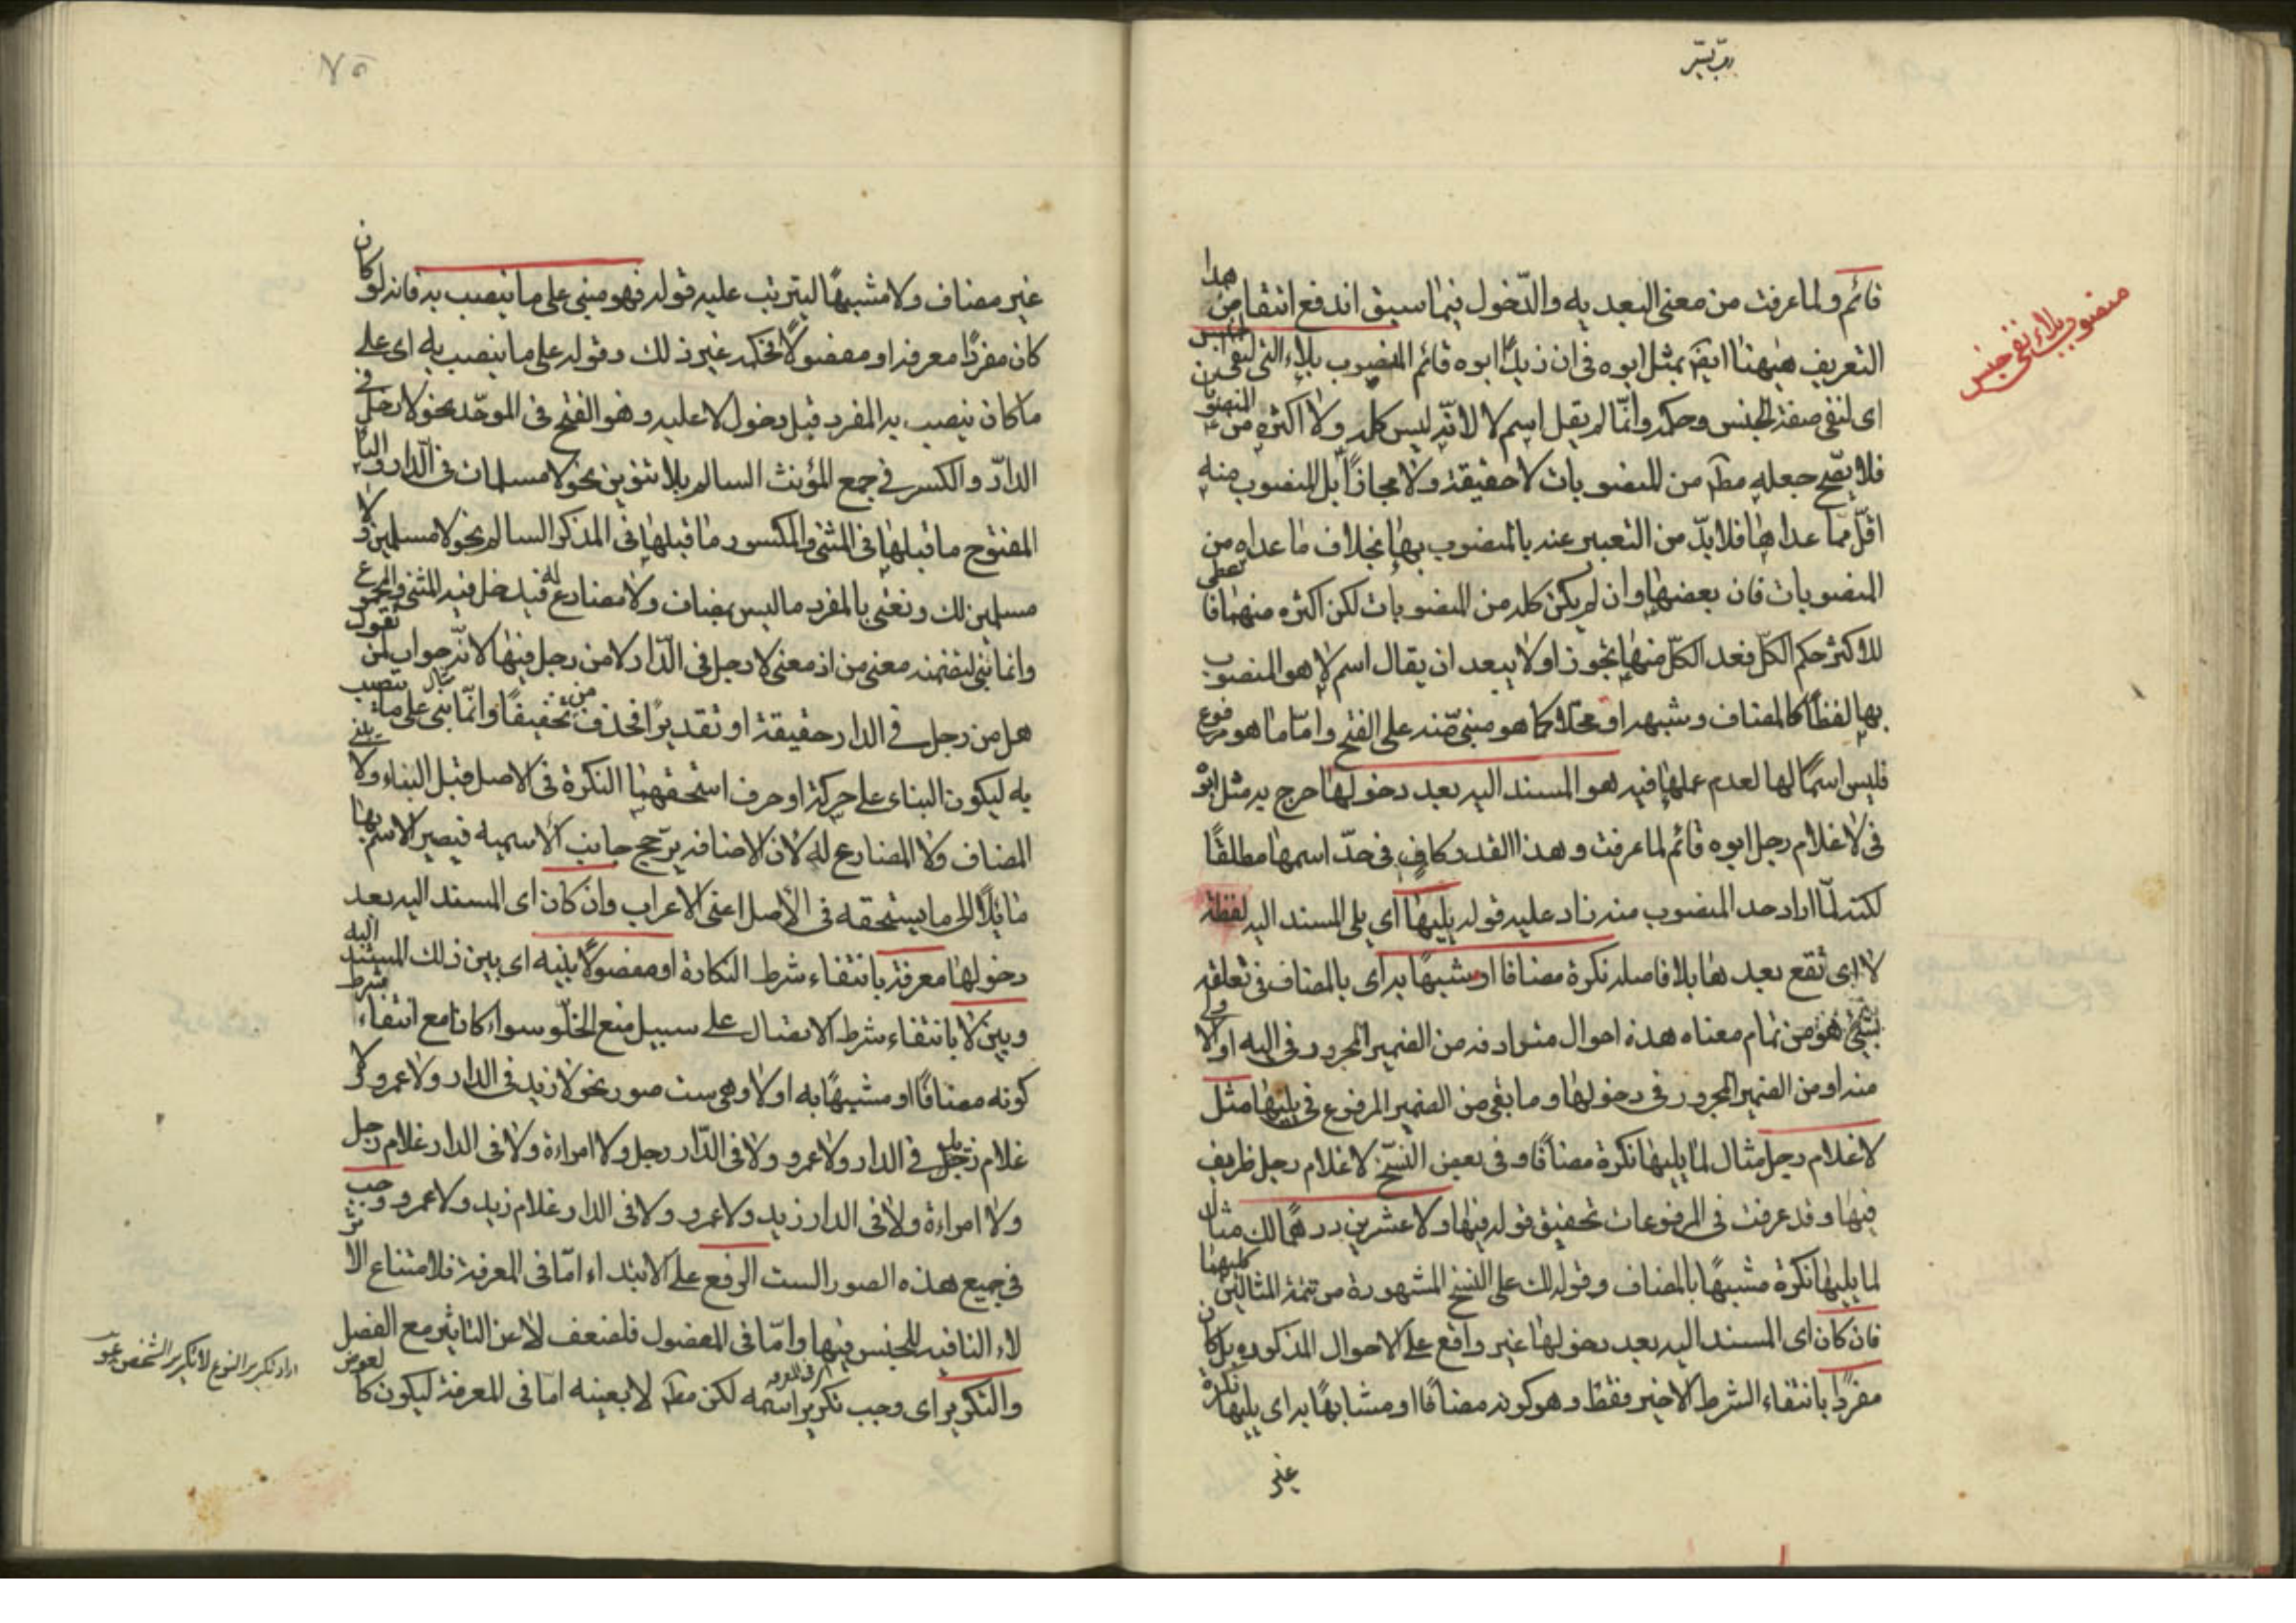 رب يسر
قائم ولما عرفت من معنى البعديه والدّخول فيما سبق اندفع انتقاض هذا
التعريف ههنا ايضًا بمثل ابوه فى ان زيدًا ابوه قائم المنصوب بلاء التى لنفى الجنس
اى لنفى صفة الجنس وحكمه وانّما لم يقل اسم لا لانّه ليس كله ولا اكثره من المنصوبات
فلا يصّح جعله مطم من المنصوبات لا حقيقة ولا مجازًا بل المنصوب منه
اقلّ ممّا عداها فلا بدّ من التعبير عنه بالمنصوب بها بخلاف ما عداه من
المنصوبات فان بعضها وان لم يكن كله من المنصوبات لكن اكثره منها فاعطى
للاكثر حكم الكلّ فعد الكلّ منها تجوزا ولا يبعد ان يقال اسم لا هو المنصوب
بها لفظًا كالمضاف وشبهه او محلا كما هو مبنى منه على الفتح وامّا ما هو مرفوع
فليس اسمًا لها لعدم عملها فيه هو المسند اليه بعد دخولها خرج به مثل ابوه
فى لا غلام رجل ابوه قائم لما عرفت وهذا القدر كافٍ فى حدّ اسمها مطلقًا
لكنه لمّا اراد حد المنصوب منه زاد عليه قوله يليها اى يلى المسند اليه لفظة
لا اى تقع بعدها بلا فاصله نكرة مضافا او مشبهًا به اى بالمضاف فى تعلقه
بشئ هو من تمام معناه هذه احوال مترادفه من الضمير المجرور فى اليه او الاولى
منه او من الضمير المجرور فى دخولها وما بقى من الضمير المرفوع فى يليها مثل
لا غلام رجل مثال لما يليها نكرة مضافًا وفى بعض النسّخ لا غلام رجل ظريف
فيها وقد عرفت فى المرفوعات تحقيق قوله فيها ولا عشرين درهمًا لك مثال
لما يليها نكرة مشبهًا بالمضاف وقوله لك على النسخ المشهورة من تتمة المثالين كليهما
فان كان اى المسند اليه بعد دخولها غير واقع على الاحوال المذكوره بل كان
مفردًا بانتفاء الشرط الاخير فقط وهو كونه مضافًا او مشابهًا به اى يليها نكرة
غير
منصوب بلاء نفى جنس
٧٥
غير مضاف ولا مشبهًا ليترتب عليه قوله فهو مبنى على ما ينصب به فانه لو كان
كان مفردًا معرفه او مفصولًا فحكمه غير ذلك وقوله على ما ينصب به اى على
ما كان ينصب به المفرد قبل دخول لا عليه وهو الفتح فى الموحّد نحو لا رجل فى
الدار والكسر فى جمع المؤنث السالم بلا تنوين نحو لا مسلمات فى الدار والياء
المفتوح ما قبلها فى المثنى والمكسور ما قبلها فى المذكر السالم نحو لا مسلمين ولا
مسلمين لك ونعنى بالمفرد ما ليس بمضاف ولا مضارع له فيدخل فيه المثنى والمجموع
وانما بنى لتضمنه معنى من اذ معنى لا رجل فى الدّار لا من رجل فيها لانّه جواب لمن يقول
هل من رجل فى الدار حقيقة او تقديرًا فحذف من تخفيفًا وانّما بنى على ما ينصب
به ليكون البناء على حركة او حرف استحقهما النكرة فى الاصل قبل البناء ولا يبنى
المضاف ولا المضارع له لان الاضافه يرّجح جانب الاسميه فيصير الاسم بها
مايلًا الى ما يستحقه فى الأصل اعنى الاعراب وان كان اى المسند اليه بعد
دخولها معرفة بانتفاء شرط النكارة او مفصولًا بينه اى بين ذلك المسند اليه
وبين لا بانتفاء شرط الاتصال على سبيل منع الخلّو سواء كان مع انتفاء شرط
كونه مضافًا او مشبهًا به او لا وهى ست صور نحو لا زيد فى الدار ولا عمرو ولا
غلام زيد فى الدار ولا عمرو ولا فى الدّار رجل ولا امراءة ولا فى الدار غلام رجل
ولا امراءة ولا فى الدار زيد ولا عمرو ولا فى الدار غلام زيد ولا عمرو وجب
فى جميع هذه الصور الست الرفع على الابتداء امّا فى المعرفة فلامتناع اثر
لاء النافيه للجنس فيها وامّا فى المفصول فلضعف لا عن التاثير مع الفصل
والتكرير اى وجب تكرير اسمه لكن مطم لا بعينه امّا فى المعرفة ليكون كالعوض
اراد تكرير النوع لا تكرير الشخص